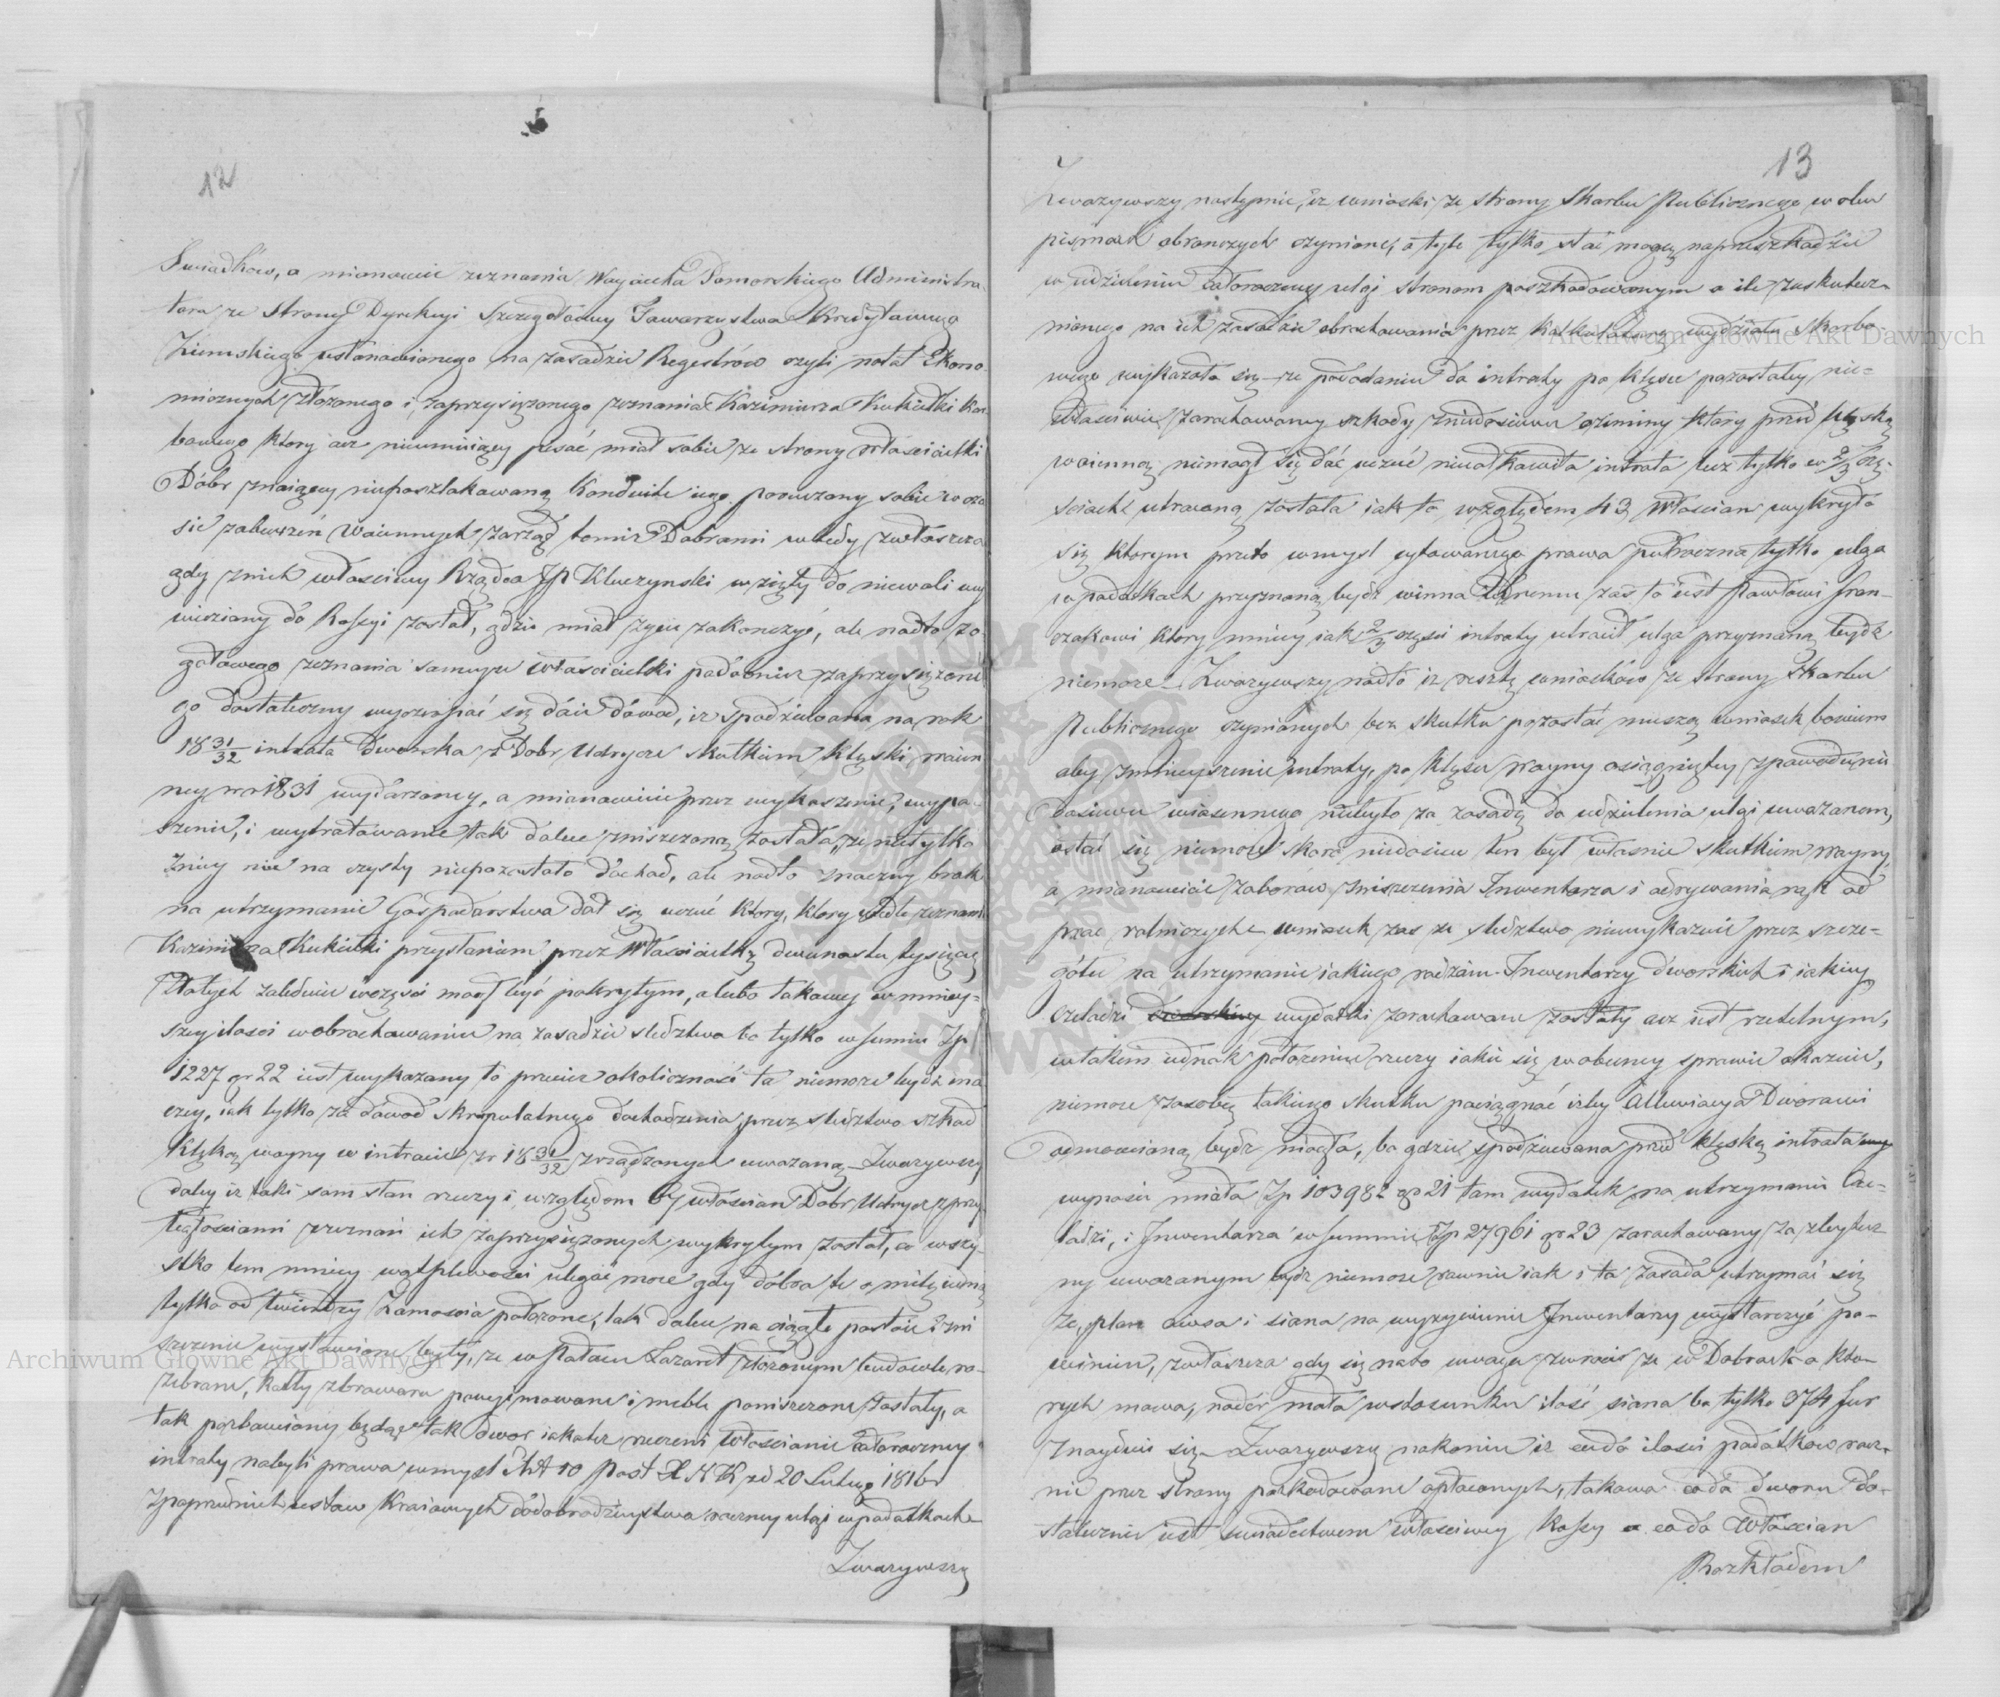 12
Swiadków, a mianowicie zeznania Woyciecha Pomorskiego Administra-
tora ze strony Dyrekcyi Szczegółowey Towarzystwa Kredytowego
Ziemskiego ustanowionego na zasadzie Regestrów czyli notat Ekono-
micznych złożonego i zaprzysiężonego zeznania Kazimierza Kukiełki Kar-
bowego który acz nieumieiący pisać miał sobie ze strony właścicielki
Dóbr znaiącey nieposzlakowaną Konduite iego poruczony sobie w cza
sie zaburzeń Woiennych zarząd temiż Dobrami wtedy zwłaszcza
gdy z nich właściwy Rządca JP Kluczynski wzięty do niewoli wy
wieziany do Rossyi został, gdzie miał życie zakończyć, ale nadto zo-
gołowego zeznania samejże właścicielki podobnie zaprzysiężone
go dostateczny wyczerpać się daie dowód, iż spodziewana na rok
18 31/32 intrata dworska z Dóbr Udrycze skutkiem klęski woien
ney w r 1831 wydarzoney, a mianowicie przez wykoszenie, wypa-
szenie, i wytratowanie tak dalece zniszczoną została, że nietylko
z niey nic na czysty niepozostało dochod, ale nadto znaczny brak
na utrzymanie Gospodarstwa dał się uczuć który, który wedle zeznani
Kazimierza Kukiełki przysłaniem przez Właścicielkę dwunastu tysięcy
Złotych zaledwie w części mogł bydź pokrytym, a lubo takowy w mniey-
szey ilości w obrachowaniu na zasadzie sledztwa bo tylko w summie Zp
1227 gr 22 iest wykazany to przecież okoliczność ta niemoże bydź ina
czey, iak tylko za dowód skrupulatnego dochodzenia przez sledztwo szkod
Klęską woyny w intracie z r 18 31/32 zrządzonych uważaną – Zważywszy
daley iż taki sam stan rzeczy i względem 64 włościan Dóbr Udrycz z przy
ległościami z zeznań ich zaprzysiężonych wykrytym został, co wszy-
stko tem mniey wątpliwości ulegać może gdy dobra te o milę iedną
tylko od twierdzy Zamoscia położone, tak dalece na ciągłe postoie i zni
szczenie wystawione były, że w Pałacu Lazaret złożonym budowle ro-
zebrane, kotły z browaru powyimowane i meble poniszczone zostały, a
tak pozbawiony będąc tak dwor iakoteż rzeczeni Włościanie całoroczney
intraty nabyli prawa w myśl Art 10 Post X N K z d 20 Lutego 1816 r
z poprzednich ustaw Kraiowych do dobrodzieystwa roczney ulgi w podatkach
Zważywszy
13
Zważywszy następnie, iż wnioski ze strony Skarbu Publicznego w obu
pismach obronczych czynione, o tyle tylko stać mogą na przeszkodzie
w udzieleniu całoroczney ulgi stronom poszkodowanym o ile z uskutecz-
nionego na ich zasadzie obrachowania przez Kalkulaturę wydziału skarbo-
wego wykazało się – że po dodaniu do intraty po klęsce pozostałey nie-
właściwie zarachowaney szkody z niedosiewu oziminy który przed klęską
woienną niemogł się dać uczuć nie całkowita intrata lecz tylko w 2/3 czę-
ściach utraconą została iak to względem 43 Włościan wykryło
się którym przeto w myśl cytowanego prawa półroczna tylko ulga
w podatkach przyznaną bydź winna któremu zaś to iest Pawłowi Fran-
czakowi który mniey iak 2/3 części intraty utracił ulga przyznaną bydź
niemoże – Zważywszy nadto iż resztę wniosków ze strony Skarbu
Publicznego czynionych bez skutku pozostać muszą wniosek bowiem
aby zmnieyszenie intraty, po klęsce woyny osiągniętey z powodu nie
dosiewu wiosennego niebyło za zasadę do udzielenia ulgi uważanem,
ostać się niemoże skoro niedosiew ten był własnie skutkiem woyny,
a mianowicie zaborów, zniszczenia Inwentarza i odrywania rąk od
prac rolniczych – wniosek zaś ze sledztwo niewykazuie przez szcze-
gółu na utrzymanie iakiego rodzaiu Inwentarzy dworskich i iakiey
czeladzi wydatki zarachowane zostały acz iest rzetelnym,
w takim iednak położeniu rzeczy iakie się w obecney sprawie okazuie,
niemoże za sobą takiego skutku pociągnąć iżby Allewiacya Dworowi
odmowioną bydź mogła, bo gdzie spodziewana przed klęską intrata
wynosić miała Zp 103982 gr 21 tam wydatek na utrzymanie Cze-
ladzi, i Inwentarza w summie Zp 27961 gr 23 zarachowany za zbytecz-
ny uważanym bydź niemoże rownie iak i ta zasada utrzymać się
że plon owsa i siana na wyżywienie Inwentarzy wystarczyć po-
winien, zwłaszcza gdy się na to uwagę zwroci że w Dobrach o któ-
rych mowa, nader mała w stosunku ilość siana bo tylko 374 fur
znayduie się – Zważywszy nakoniec iż co do ilości podatków rocz-
nie przez strony poszkodowane opłaconych, takowa co do dworu do-
statecznie iest swiadectwem właściwey Kassy a co do Włościan
Rozkładem
Archiwum Główne Akt Dawnych
Archiwum Główne Akt Dawnych